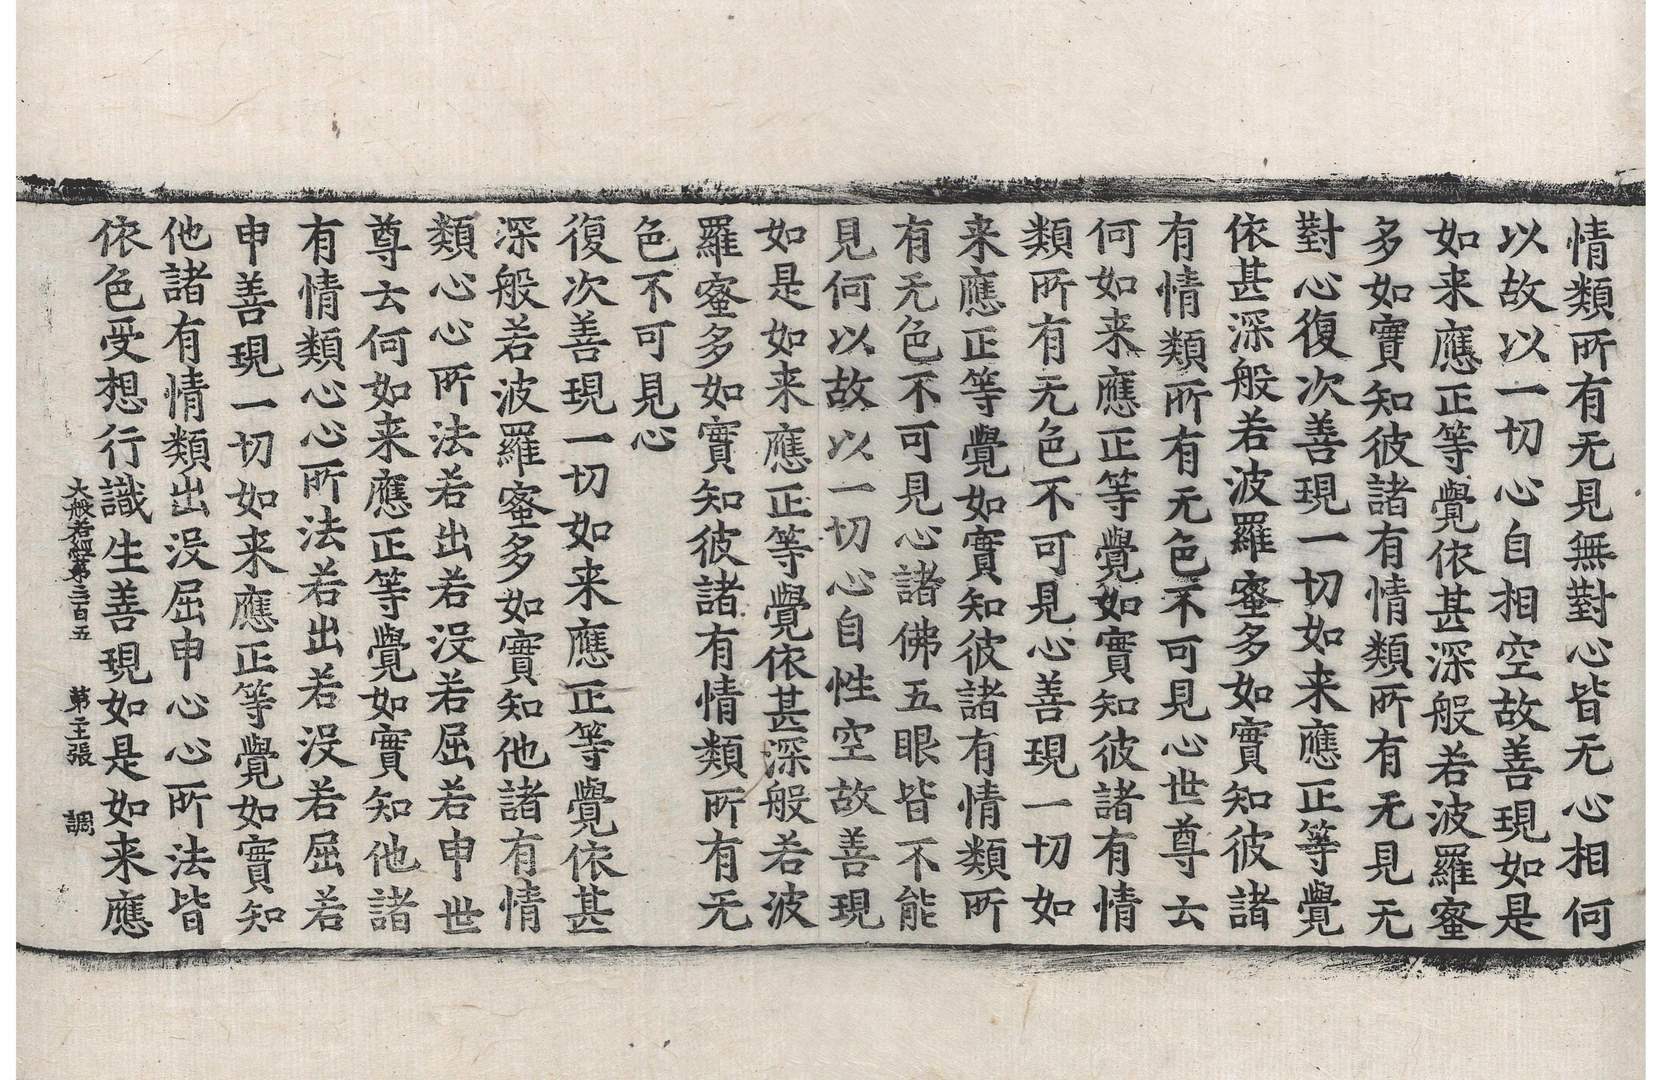 情類所有无見無對心皆无心相何
以故以一切心自相空故善現如是
如来應正等覺依甚深般若波羅蜜
多如實知彼諸有情類所有无見无
對心復次善現一切如来應正等覺
依甚深般若波羅蜜多如實知彼諸
有情類所有无色不可見心世尊云
何如来應正等覺如實知彼諸有情
類所有无色不可見心善現一切如
来應正等覺如實知彼諸有情類所
有无色不可見心諸佛五眼皆不能
見何以故以一切心自性空故善現
如是如来應正等覺依甚深般若波
羅蜜多如實知彼諸有情類所有无
色不可見心
復次善現一切如来應正等覺依甚
深般若波羅蜜多如實知他諸有情
類心心所法若出若沒若屈若申世
尊云何如来應正等覺如實知他諸
有情類心心所法若出若沒若屈若
申善現一切如来應正等覺如實知
他諸有情類出沒屈申心心所法皆
依色受想行識生善現如是如来應
大般若經第三百五 第二十張 調